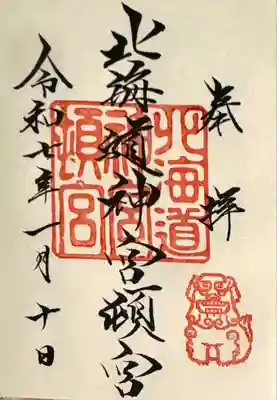 奉拝
北海道神宮頓宮
北海道
神宮
頓宮
令和七年一月十日